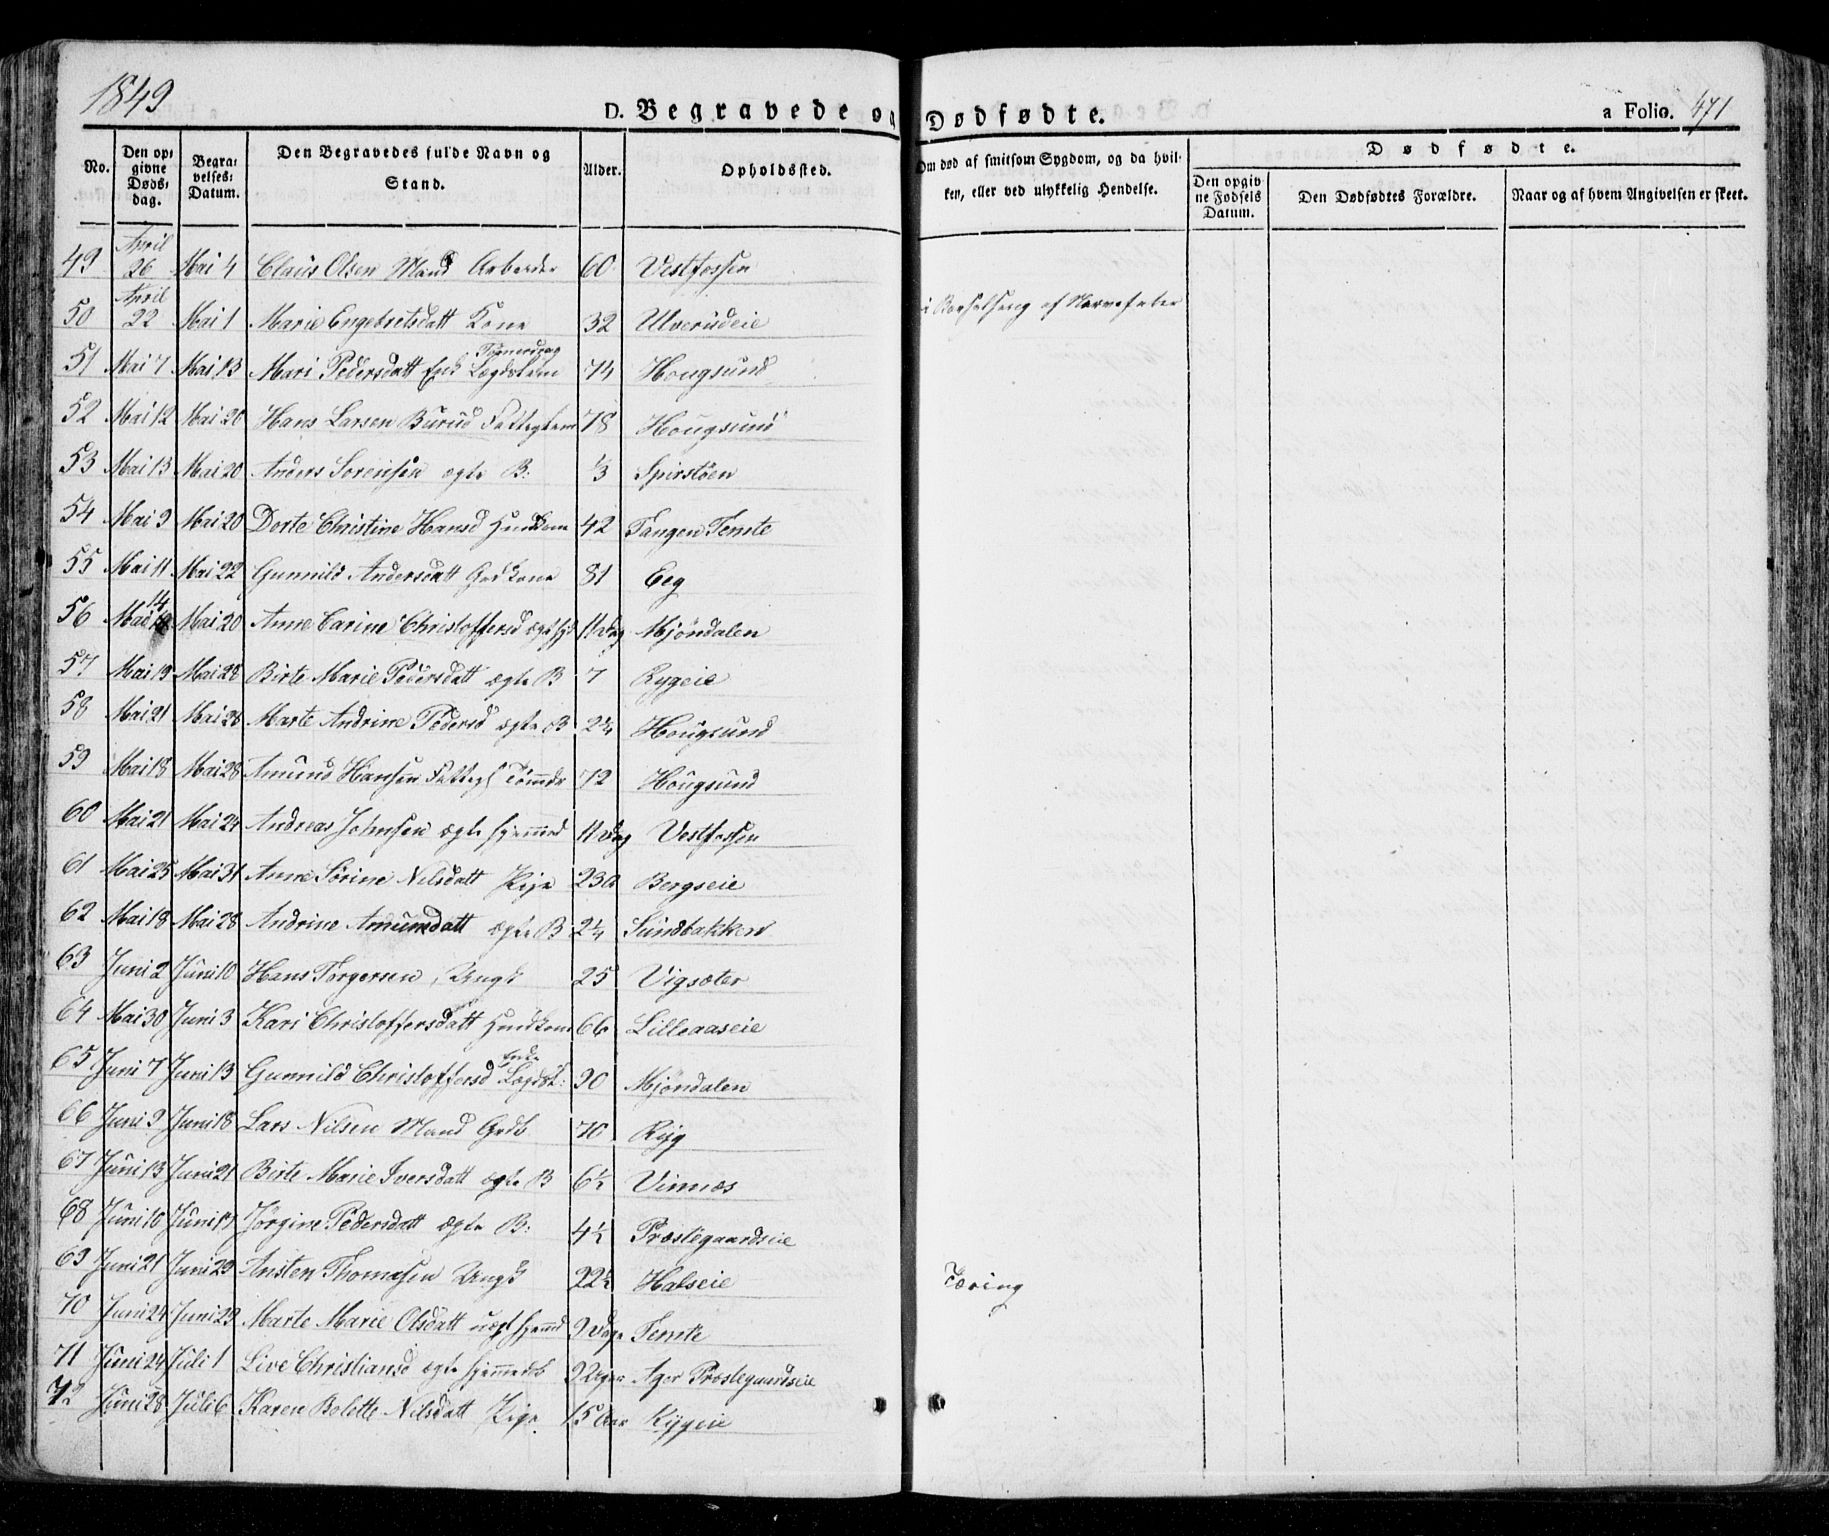 1849
D. Begravede og Dødfødte.
a Folio. 471
No.
Den opgivne Dødsdag.
Begravelses-Datum.
Den Begravedes fulde Navn og Stand.
Alder.
Opholdssted.
Om død af smitsom Sygdom, og da hvilken, eller ved ulykkelig Hendelse.
Dødfødte.
Den opgivne Fødsels Datum.
Den Dødfødtes Forældre.
Naar og af hvem Angivelsen er skeet.
49 April 26 Mai 4 Claus Olsen Mand Arbeider 60 Vestfossen
50 April 22 Mai 1 Marie Engebretsdatt Kone 32 Ulverudeie i Barselseng af Nervefeber
51 Mai 7 Mai 13 Mari Pedersdatt Enk Lægdslem 74 Hougsund
52 Mai 12 Mai 20 Hans Larsen Burud Fattiglem 78 Hougsund
53 Mai 13 Mai 20 Anders Sørensen ægte B: 1/3 Spirstøen
54 Mai 9 Mai 20 Dorte Christine Hansd Husmkone 42 Tangen Temte
55 Mai 11 Mai 22 Gunnild Andersdatt Grdkone 81 Eeg
56 Mai 14 Mai 20 Anne Carine Christoffersd ægt hjd 11 dag Mjøndalen
57 Mai 19 Mai 28 Birte Marie Pedersdatt ægte B 7 Rygeie
58 Mai 21 Mai 28 Marte Andrine Pedersd ægte B 2 1/4 Hougsund
59 Mai 18 Mai 28 Amund Hansen Fattigl Tømdr 72 Hougsund
60 Mai 21 Mai 24 Andreas Johnsen ægte hjemmed 11 dag Vestfossen
61 Mai 25 Mai 31 Anne Sørine Nilsdatt Pige 23 Bergseie
62 Mai 18 Mai 28 Andrine Amundsdatt ægte B 2 1/4 Sundbakken
63 Juni 2 Juni 10 Hans Torgersen Ungk 25 Vigsæter
64 Mai 30 Juni 3 Kari Christoffersdatt Husmkone 66 Lilleaaseie
65 Juni 7 Juni 13 Gunnild Christoffersd Enke Lægdsl: 90 Mjøndalen
66 Juni 9 Juni 18 Lars Nilsen Mand Grdb 70 Ryg
67 Juni 13 Juni 21 Birte Marie Iversdatt ægte B 6 1/2 Vinnæs
68 Juni 10 Juni 17 Jørgine Pedersdatt ægte B: 4 1/2 Præstegaardseie
69 Juni 21 Juni 29 Ansten Thomasen Ungk 22 1/2 Halseie Tæring
70 Juni 24 Juni 29 Marte Marie Olsdatt uægt hjemd 9 dage Temte
71 Juni 24 Juli 1 Live Christiansd ægte hjemmedb 9 Uger Ager Præstegaardseie
72 Juni 28 Juli 6 Karen Bolette Nilsdatt Pige 15 Aar Rygeie